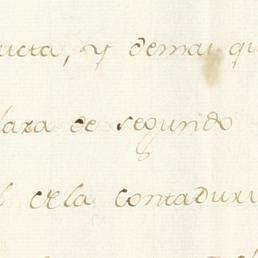 ucta, y demas qu
laza de segundo
l de la contaduri